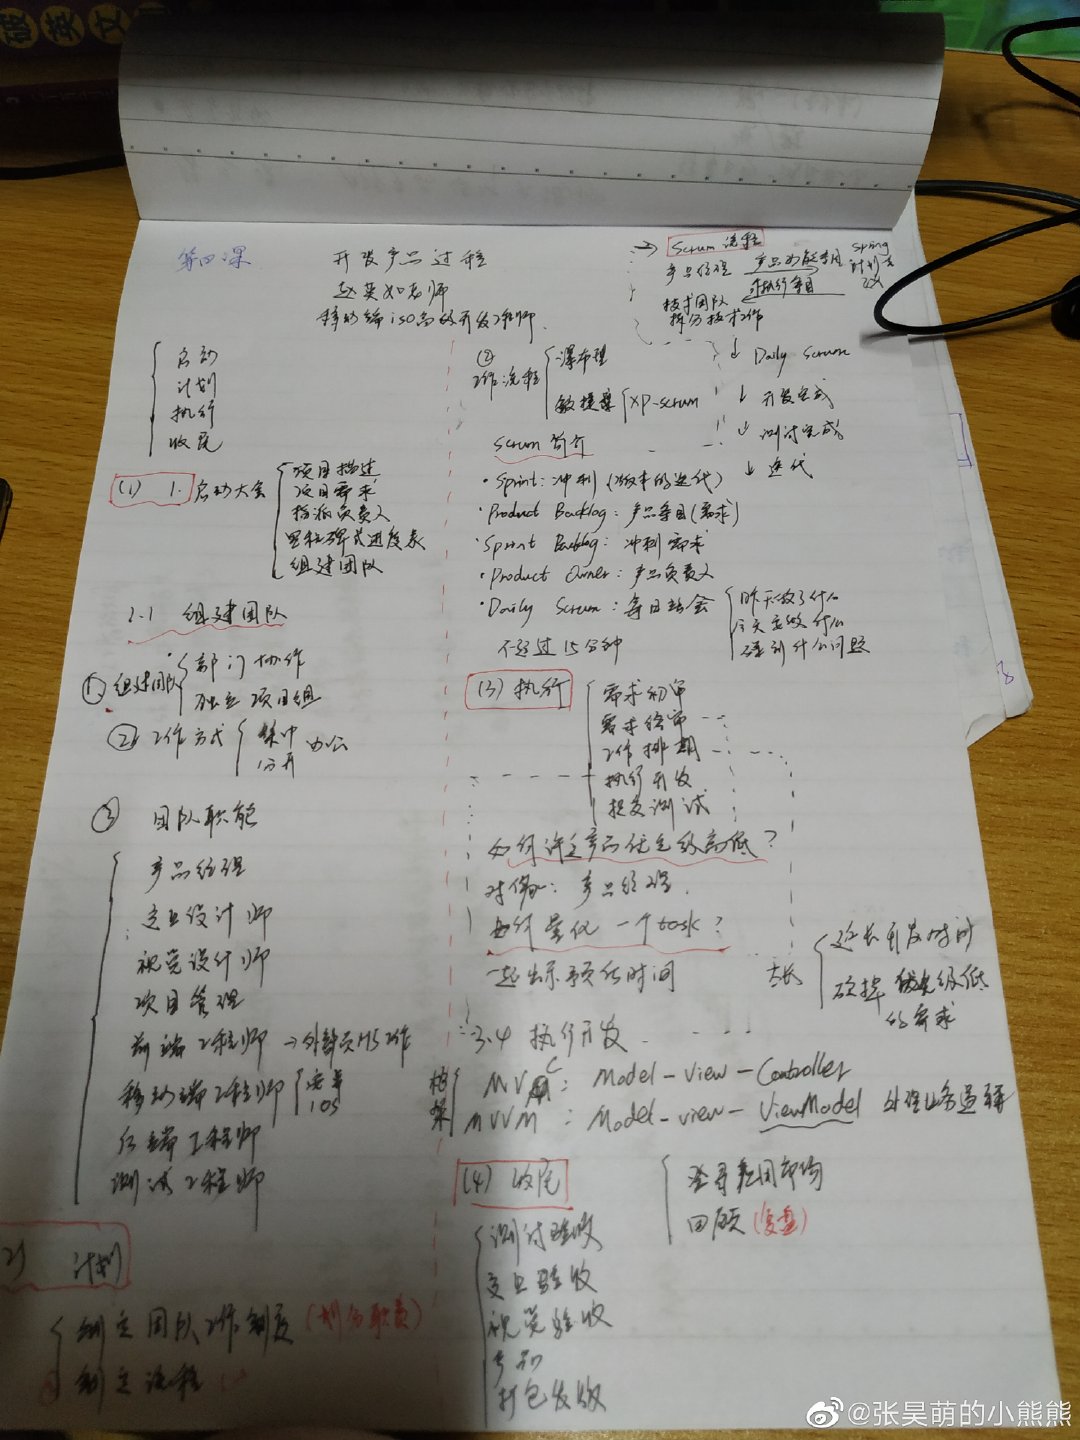 第四课
开发产品过程
赵英如老师
移动端iso高级开发工程师
启动
计划
执行
收尾
(1) 1. 启动大会
项目描述
项目需求
指派负责人
里程碑式进度表
组建团队
1.1 组建团队
① 组建团队
部门协作
独立项目组
② 工作方式
集中
分开
办公
③ 团队职能
产品经理
交互设计师
视觉设计师
项目管理
前端工程师→外部员H5工作
移动端工程师
安卓
ios
后端工程师
测试工程师
2) 计划
制定团队工作制度(划分职责)
制定流程
→ Scrum 流程
产品经理
技术团队
拆分技术工作
② 工作流程
瀑布型
敏捷型
XP-scrum
↓ Daily Scrum
↓ 开发完成
↓ 测试完成
↓ 迭代
Scrum 简介
·Sprint: 冲刺 (版本的迭代)
·Product Backlog: 产品条目(需求)
·Sprint Backlog: 冲刺需求
·Product Owner: 产品负责人
·Daily Scrum: 每日站会
不超过15分钟
昨天做了什么
今天要做什么
碰到什么问题
(3) 执行
需求初审
需求终审
工作排期
执行开发
提交测试
如何评定产品优先级高低?
对象: 产品经理
如何量化一个task?
一起出示预估时间
太长
延长开发时间
砍掉优先级低
的需求
3.4 执行开发
框架
MVC: Model-View-Controller
MVVM: Model-view-ViewModel 处理业务逻辑
(4) 收尾
测试验收
交互验收
视觉验收
打包发版
回顾(复盘)
@张昊萌的小熊熊